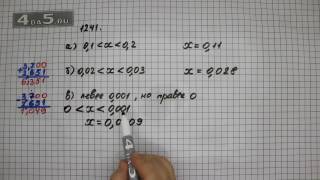 4DA5.RU
1241.
а) 0,1<x<0,2 x=0,11
б) 0,02<x<0,03 x=0,028
в) левее 0,001, но правее 0
0<x<0,001
x=0,0009
+3,700
2,651
6,351
-3,700
2,651
1,049